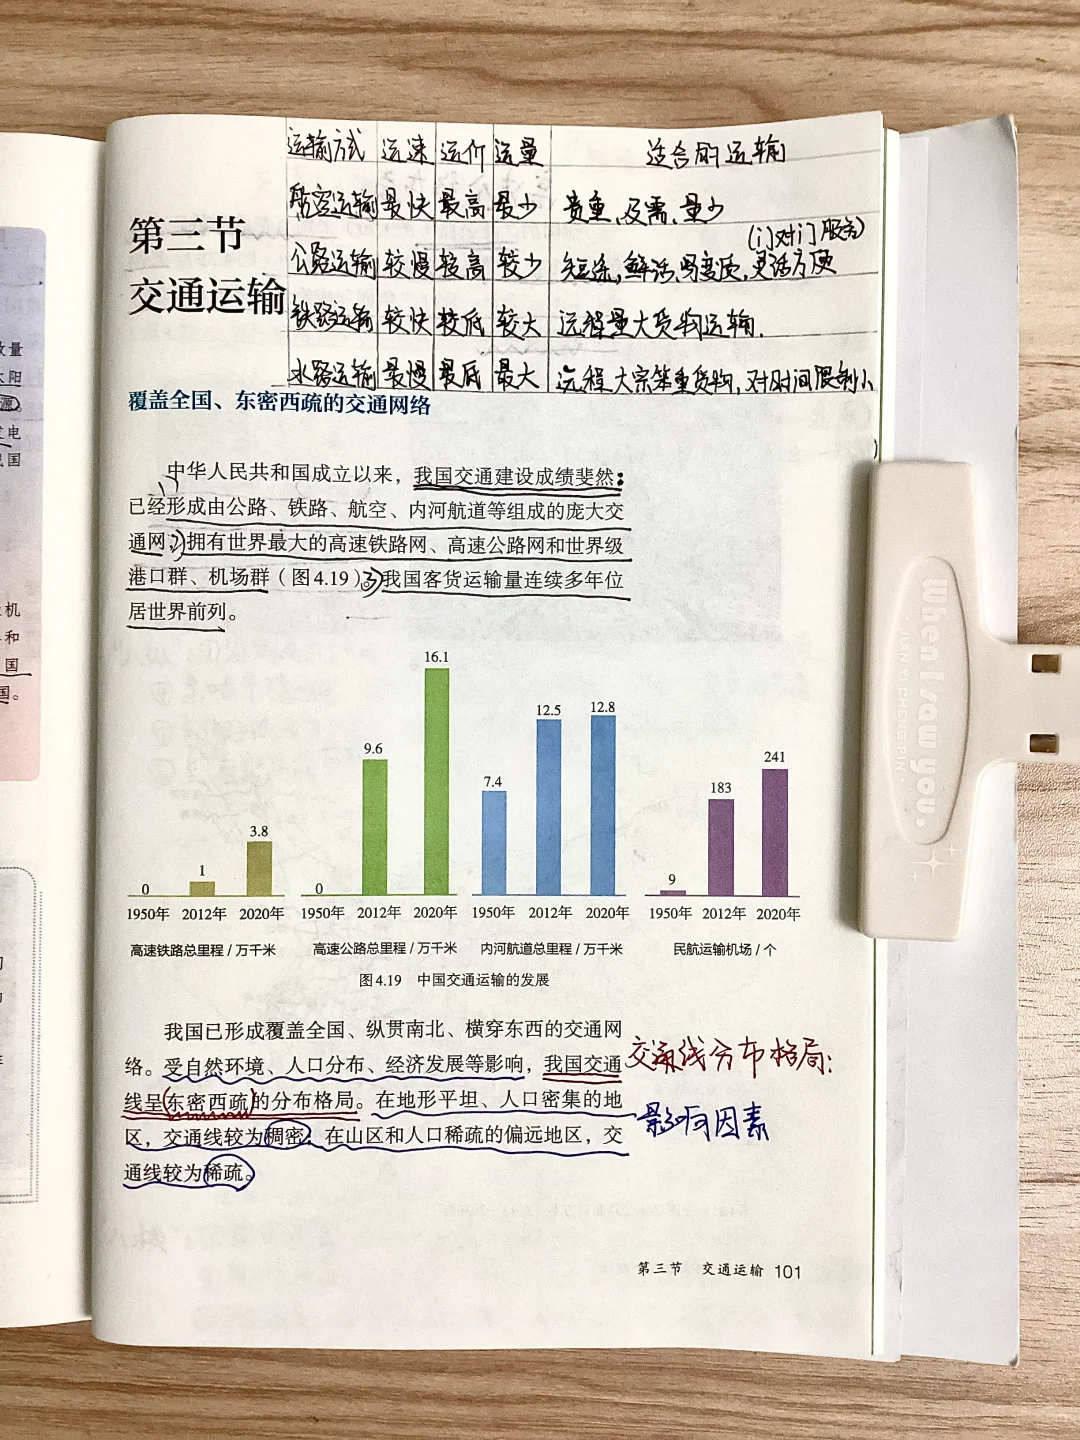 运输方式 运速 运价 运量 适合的运输
航空运输 最快 最高 最少 贵重、及需、量少
(门对门服务)
公路运输 较慢 较高 较少 短途,鲜活,易变质,灵活方便
铁路运输 较快 较低 较大 远程量大货物运输.
水路运输 最慢 最低 最大 远程大宗笨重货物,对时间限制小
第三节
交通运输
覆盖全国、东密西疏的交通网络
中华人民共和国成立以来,我国交通建设成绩斐然:
已经形成由公路、铁路、航空、内河航道等组成的庞大交
通网;拥有世界最大的高速铁路网、高速公路网和世界级
港口群、机场群(图4.19)。我国客货运输量连续多年位
居世界前列。
16.1
12.5 12.8
9.6
7.4
241
183
3.8
1
0
0
9
1950年 2012年 2020年 1950年 2012年 2020年 1950年 2012年 2020年 1950年 2012年 2020年
高速铁路总里程/万千米 高速公路总里程/万千米 内河航道总里程/万千米 民航运输机场/个
图4.19 中国交通运输的发展
我国已形成覆盖全国、纵贯南北、横穿东西的交通网
络。受自然环境、人口分布、经济发展等影响,我国交通
线呈东密西疏的分布格局。在地形平坦、人口密集的地
区,交通线较为稠密;在山区和人口稀疏的偏远地区,交
通线较为稀疏。
交通线分布格局:
影响因素
第三节 交通运输 101
When I saw you.
JIAN YI CHENG PIN
数量
太阳
源。
电
国
机
和
国
国。